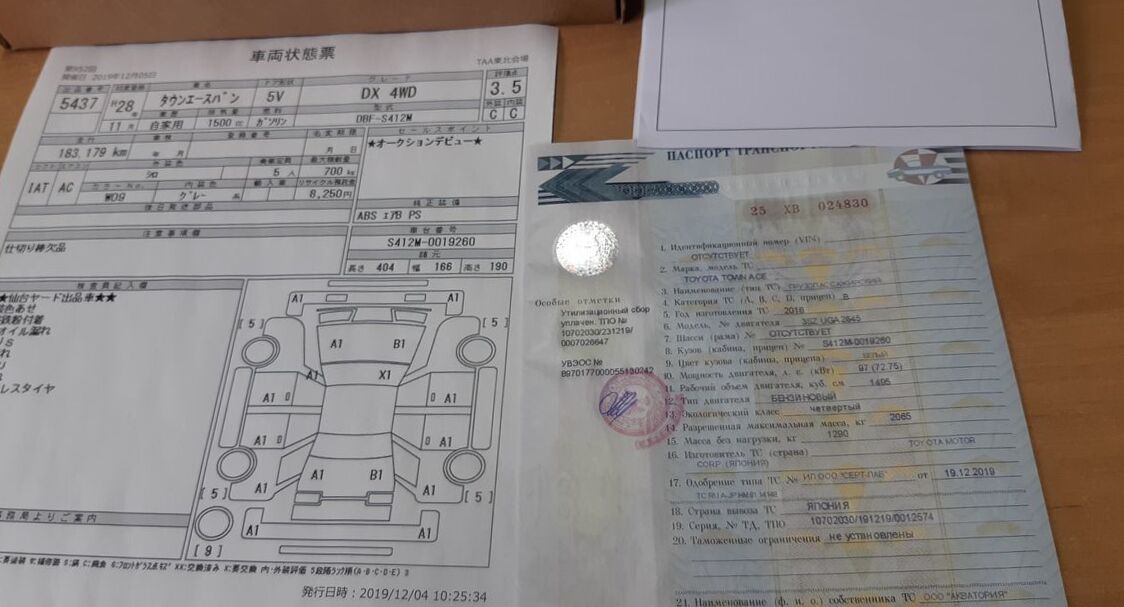 車両状態票
第952回
開催日 2019年12月05日
TAA東北会場
出品番号
初度登録
車名
ドア形状
グレード
評価点
5437
H28年
タウンエースバン
5V
DX 4WD
3.5
車歴
排気量
燃料
型式
外装 内装
11月
自家用
1500 cc
ガソリン
DBF-S412M
C C
走行
車検
登録番号
名変期限
セールスポイント
183,179 km
年 月
月 日
★オークションデビュー★
外装色
乗車定員
最大積載量
シロ
5 人
700 kg
IAT
AC
カラーNo.
内装色
輸入車
リサイクル預託金
W09
グレー 系
8,250円
純正装備
後日発送部品
ABS エアB PS
注意事項欄
車台番号
仕切り棒欠品
S412M-0019260
諸元
長さ 404 幅 166 高さ 190
検査員記入欄
★仙台ヤード出品車★★
色あせ
鉄粉付着
オイル漏れ
レスタイヤ
A1 A1
[5] [5]
A1 B1
A1 X1
A1 0 0 A1
A1 0 0 A1
A1 B1
[5] A1 A1 [5]
A1 A1
[9]
務局よりご案内
発行日時：2019/12/04 10:25:34
ПАСПОРТ ТРАНСПОР
25 ХВ 024830
1. Идентификационный номер (VIN)
ОТСУТСТВУЕТ
2. Марка, модель ТС
TOYOTA TOWN ACE
3. Наименование (тип ТС) ГРУЗОПАССАЖИРСКИЙ
4. Категория ТС (А, В, С, D, прицеп) B
5. Год изготовления ТС 2016
6. Модель, № двигателя 3SZ UGA 2645
7. Шасси (рама) № ОТСУТСТВУЕТ
8. Кузов (кабина, прицеп) № S412M-0019260
9. Цвет кузова (кабины, прицепа) БЕЛЫЙ
10. Мощность двигателя, л. с. (кВт) 97 (72.75)
11. Рабочий объем двигателя, куб. см 1495
12. Тип двигателя БЕНЗИНОВЫЙ
13. Экологический класс четвертый
14. Разрешенная максимальная масса, кг 2065
15. Масса без нагрузки, кг 1290
16. Изготовитель ТС (страна) TOYOTA MOTOR
CORP (ЯПОНИЯ)
17. Одобрение типа ТС № ИЛ ООО "СЕРТ-ЛАБ" от 19.12.2019
18. Страна вывоза ТС ЯПОНИЯ
19. Серия, № ТД, ТПО 10702030/191219/0012574
20. Таможенные ограничения не установлены
21. Наименование (ф. и. о.) собственника ТС ООО "АКВАТОРИЯ"
Особые отметки
Утилизационный сбор
уплачен. ТПО №
10702030/231219/
0007026647
УВЭОС №
8970177000055130242